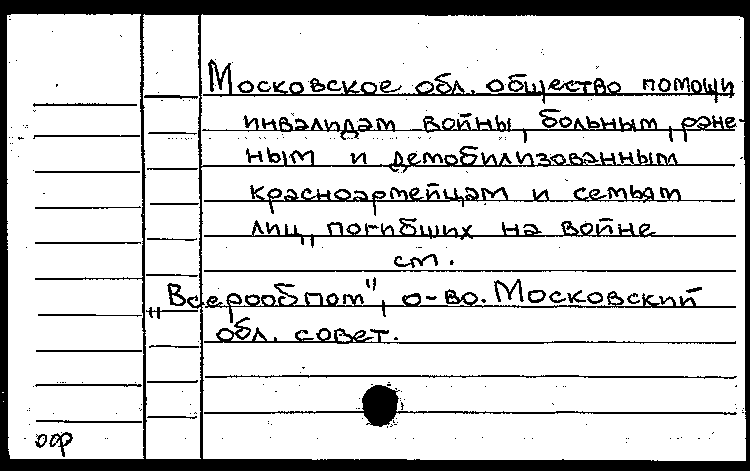 Московское обл. общество помощи
инвалидам войны, больным, ране-
ным и демобилизованным
красноармейцам и семьям
лиц, погибших на войне
см.
„Всерообпом", о-во. Московский
обл. совет.
оор